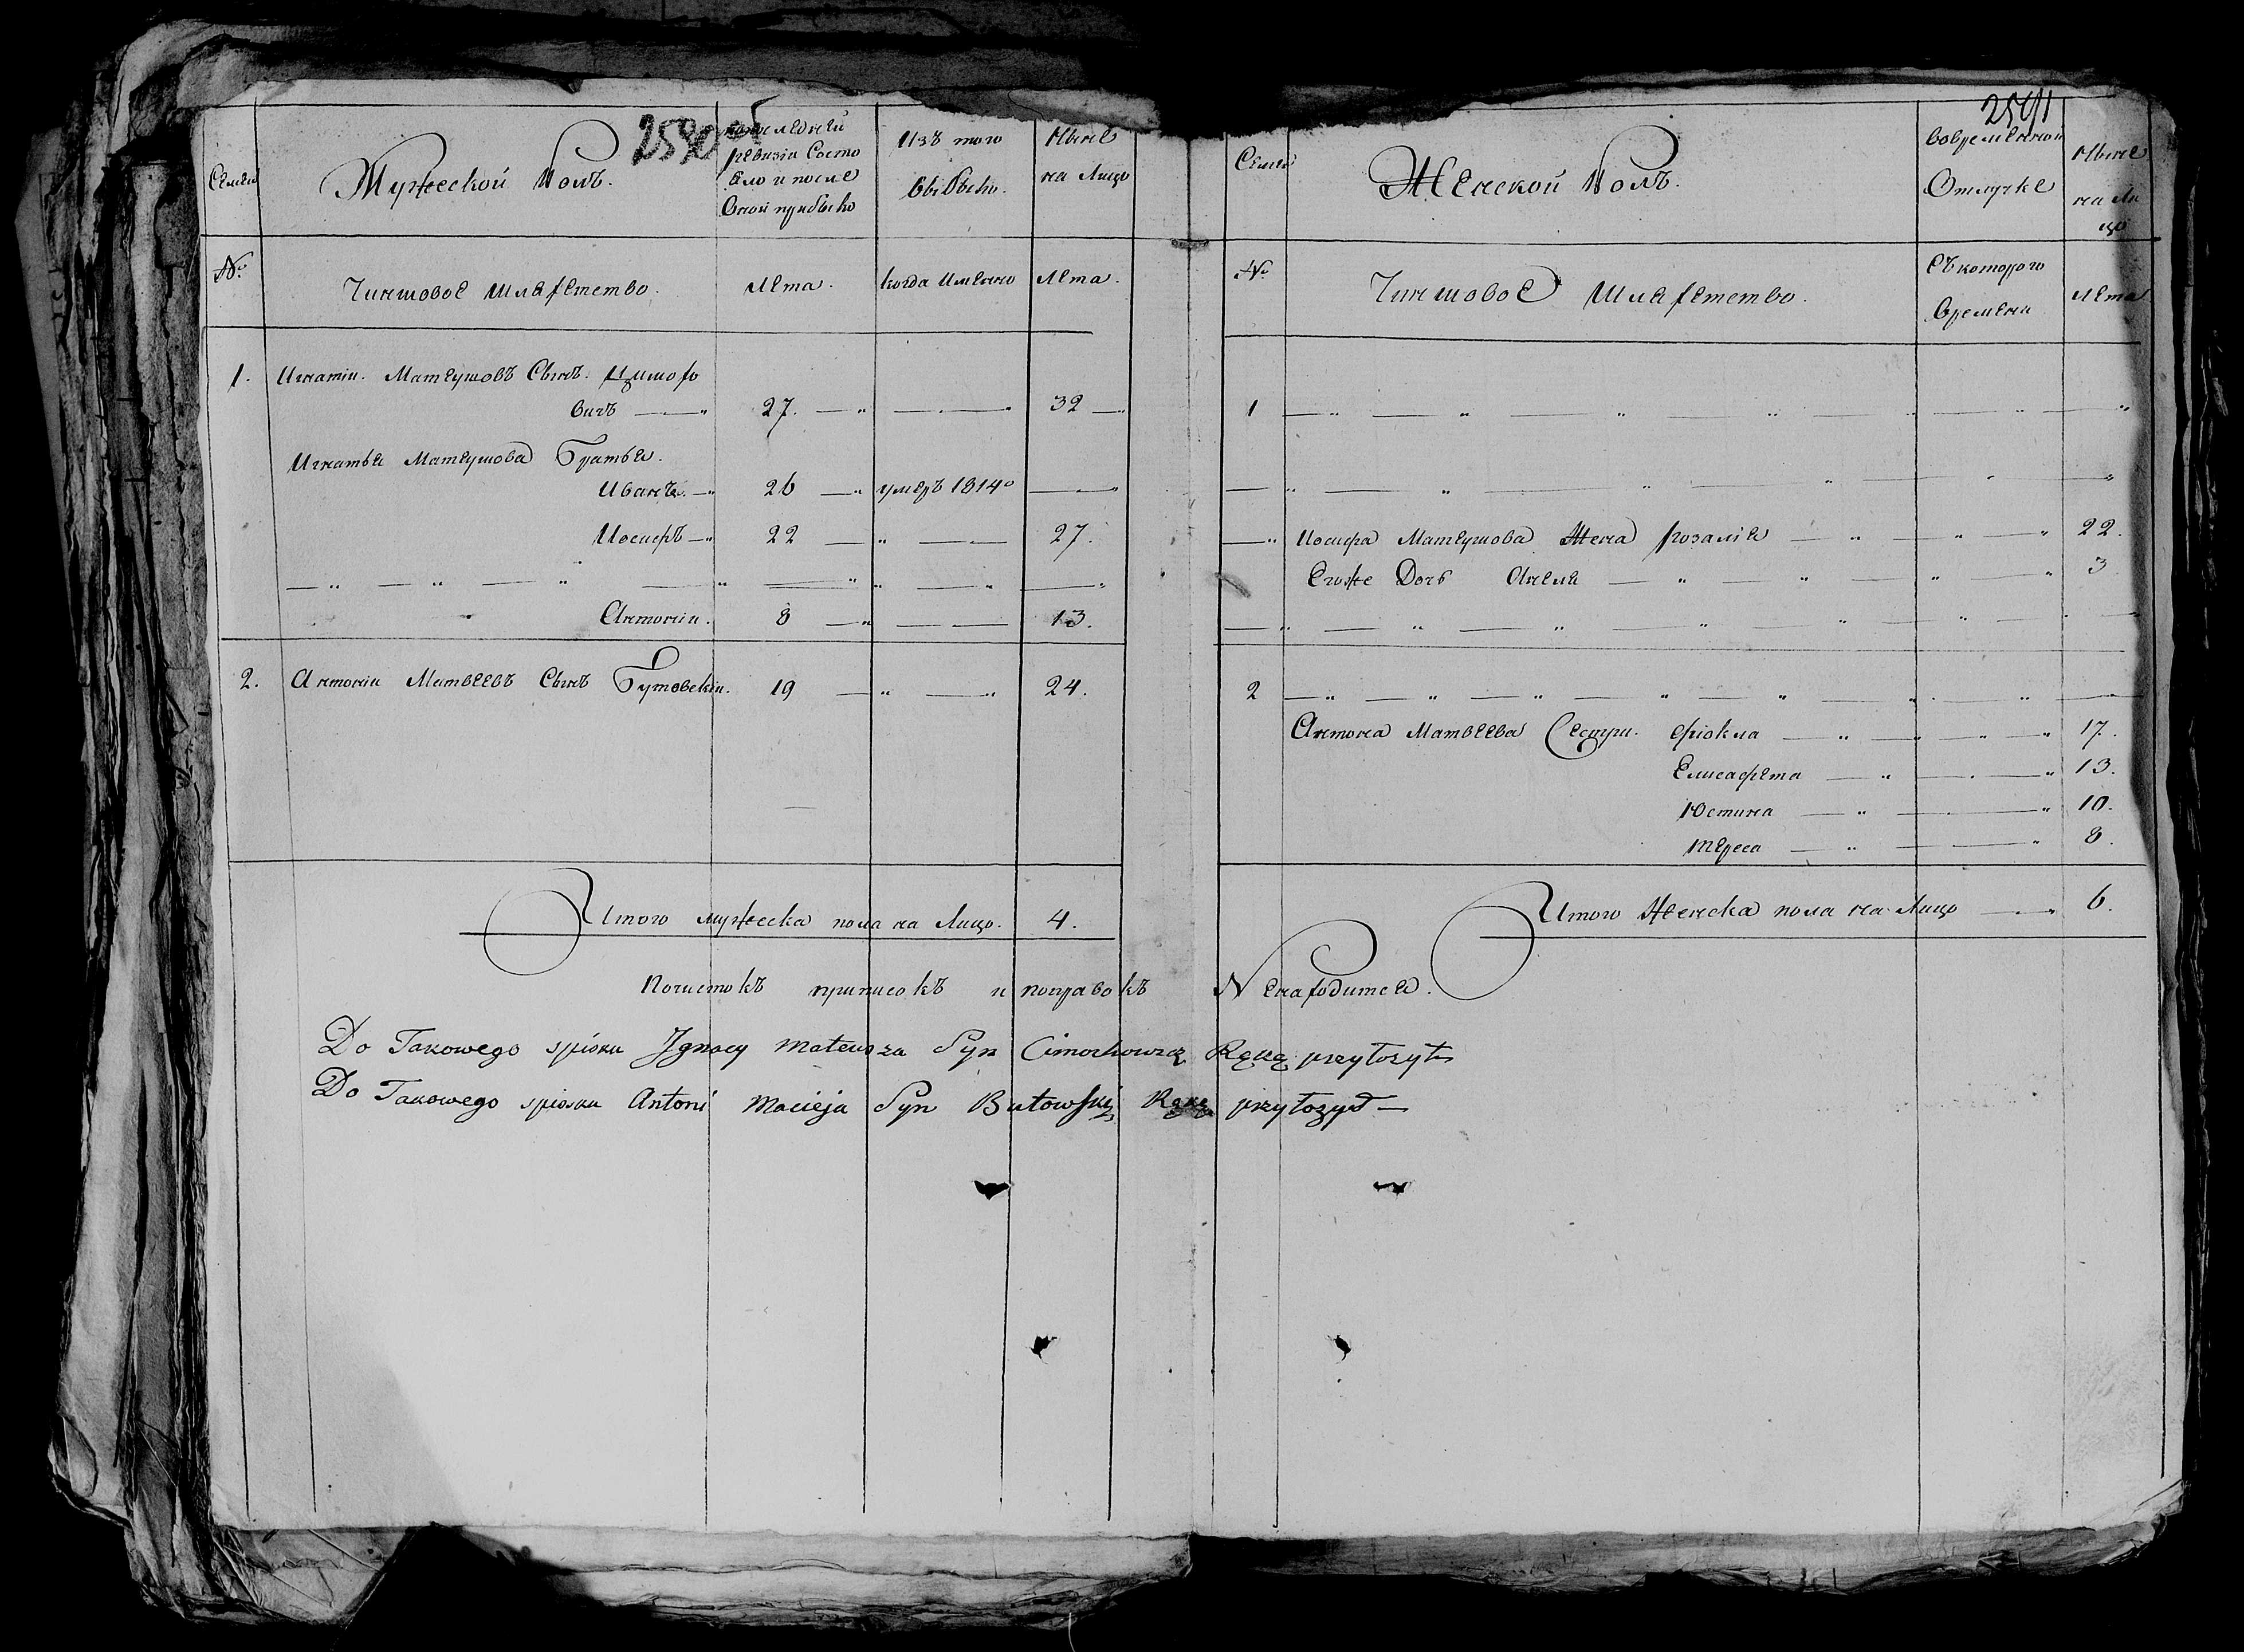 2540 об
Семьи
Мужеской Полъ.
по последней
ревизіи Состо
яло и после
Оной прибыло
Изъ того
выбыло.
Ныне
на Лицо
№
Чиншовое Шляхетство.
Лета.
когда имянно
Лета.
1. Игнатіи. Матеушовъ Сынъ. Цимохо
вичъ 27. 32
Игнатья Матеушова Братья.
Иванъ. 26 умеръ 1814о
Иосифъ 22 27.
Антоніи. 8 13.
2. Антоніи Матвеевъ Сынъ Бутовскіи. 19 24.
Итого мужеска пола на Лицо. 4.
2541
Семьи
Женской Полъ.
вовременной
Отлучке
Ныне
на Ли
цо
№
Чиншовое Шляхетство.
Съ которого
времени
Лета
1
Иосифа Матеушова Жена розалія 22.
Егоже Дочь Анеля 3
2
Антона Матвеева Сестры. Фіокла 17.
Елисафета 13.
Юстина 10.
Тереса 8.
Итого Женска пола на Лицо 6.
Почистокъ приписокъ и поправокъ Ненаходится.
Do Takowego spisku Jgnacy Mateusza Syn Cimochowicz Rękę przyłożył
Do Takowego spisku Antoni Macieja Syn Butowski Rękę przyłożył